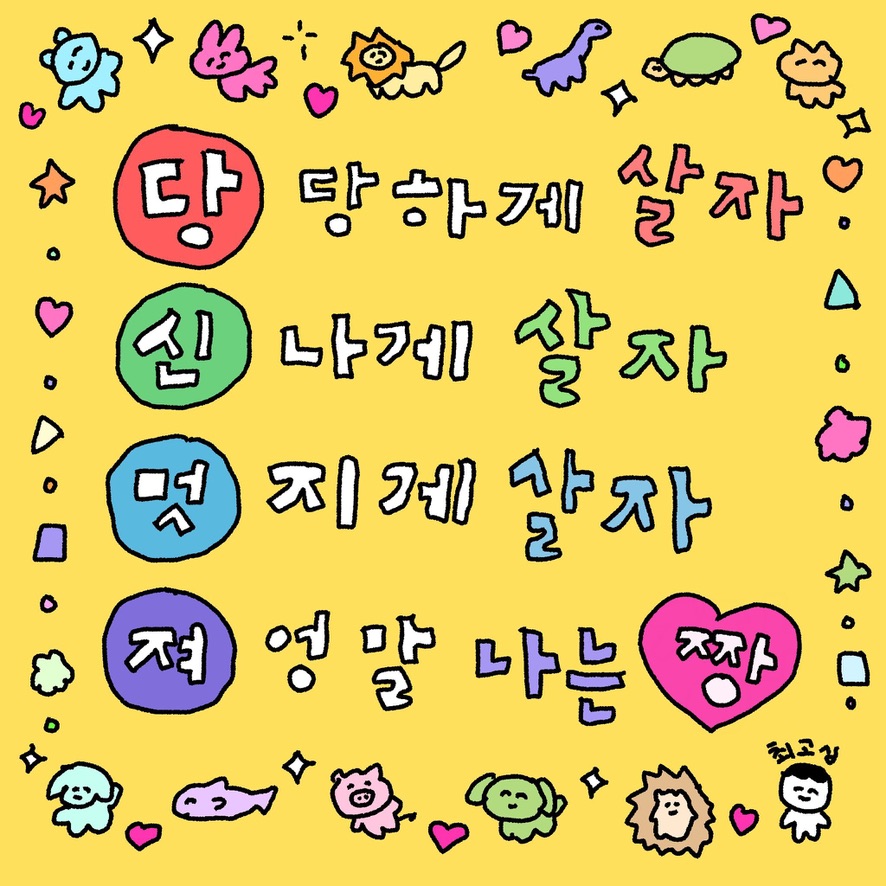 당당하게 살자
신나게 살자
멋지게 살자
져엉말 나는 짱
최고심